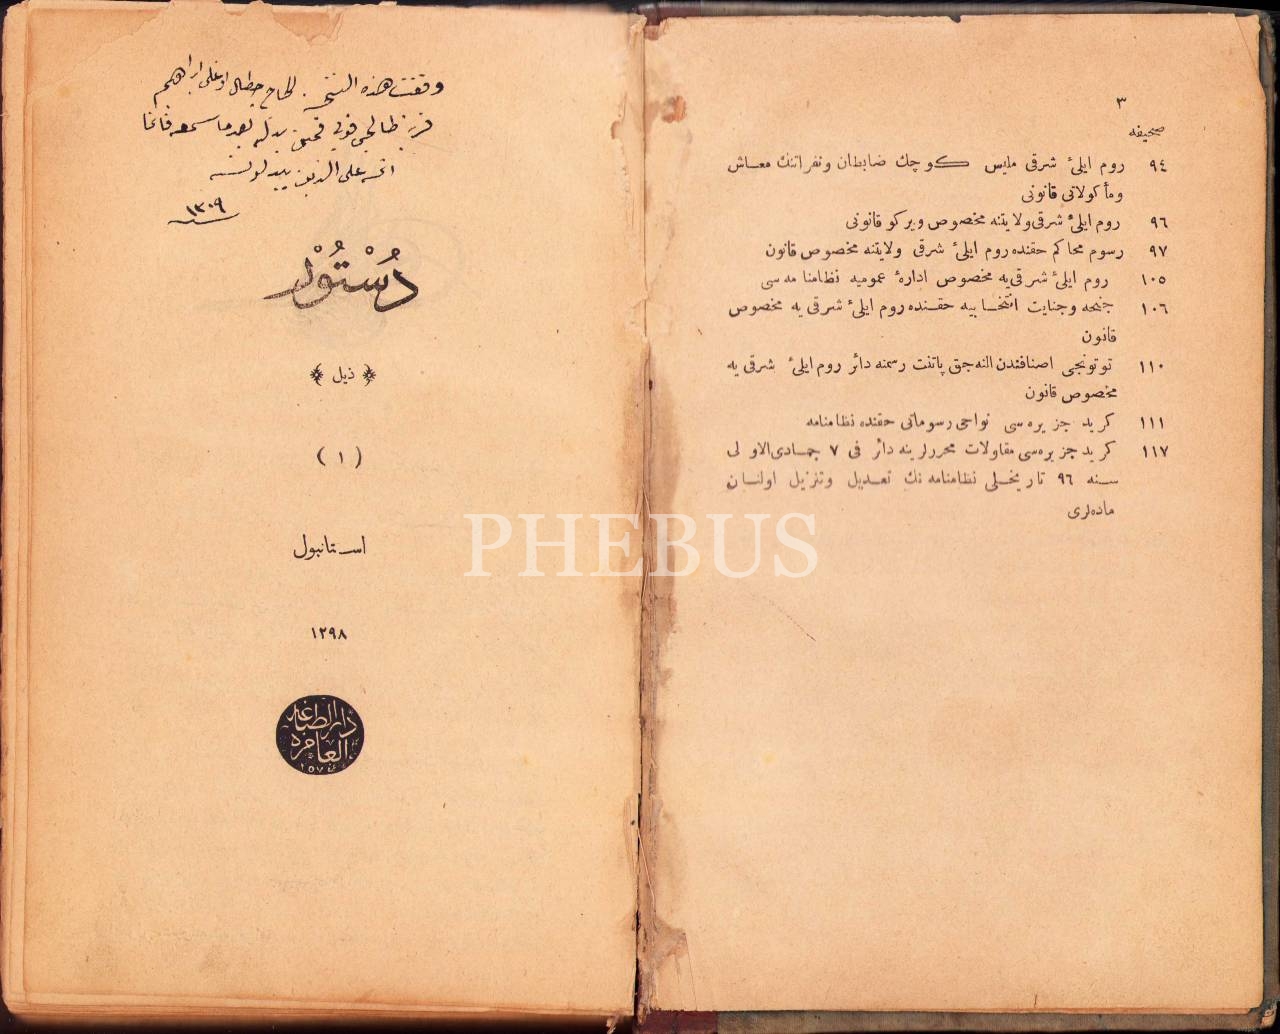 ٣
صحيفه
٩٤ روم ايلئ شرقى مليس كوچك ضابطان ونفراتنك معاش
ومأكولاتى قانونى
٩٦ روم ايلئ شرقى ولايتنه مخصوص ويركو قانونى
٩٧ رسوم محاكم حقنده روم ايلئ شرقى ولايتنه مخصوص قانون
١٠٥ روم ايلئ شرقى يه مخصوص ادارهٔ عموميه نظامنامه سى
١٠٦ جنحه وجنايت انتخابيه حقنده روم ايلئ شرقى يه مخصوص
قانون
١١٠ توتونجى اصنافندن النه جق پاتنت رسمنه دائر روم ايلئ شرقى يه
مخصوص قانون
١١١ كريد جزيره سى نواحى رسوماتى حقنده نظامنامه
١١٧ كريد جزيره سى مقاولات محررلرينه دائر فى ٧ جمادى الاولى
سنه ٩٦ تاريخلى نظامنامه نك تعديل وتنزيل اولنان
ماده لرى
وقفت هذه النسخه الحاج اوغلى ابراهيم
بعدما سمعه فانما
اثمه على الذين يبدلونه
سنه ١٣٠٩
دُسْتُوْر
ذيل
(١)
استانبول
١٢٩٨
دار الطباعه
العامره
PHEBUS